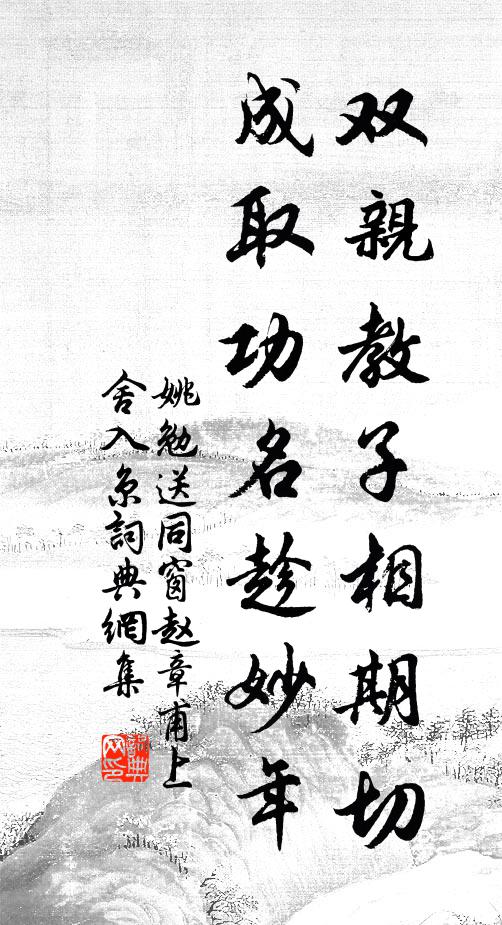 双親教子相期切
成取功名趁妙年
姚勉送同窗赵章甫上
舍入京詞典網集
詞典网印